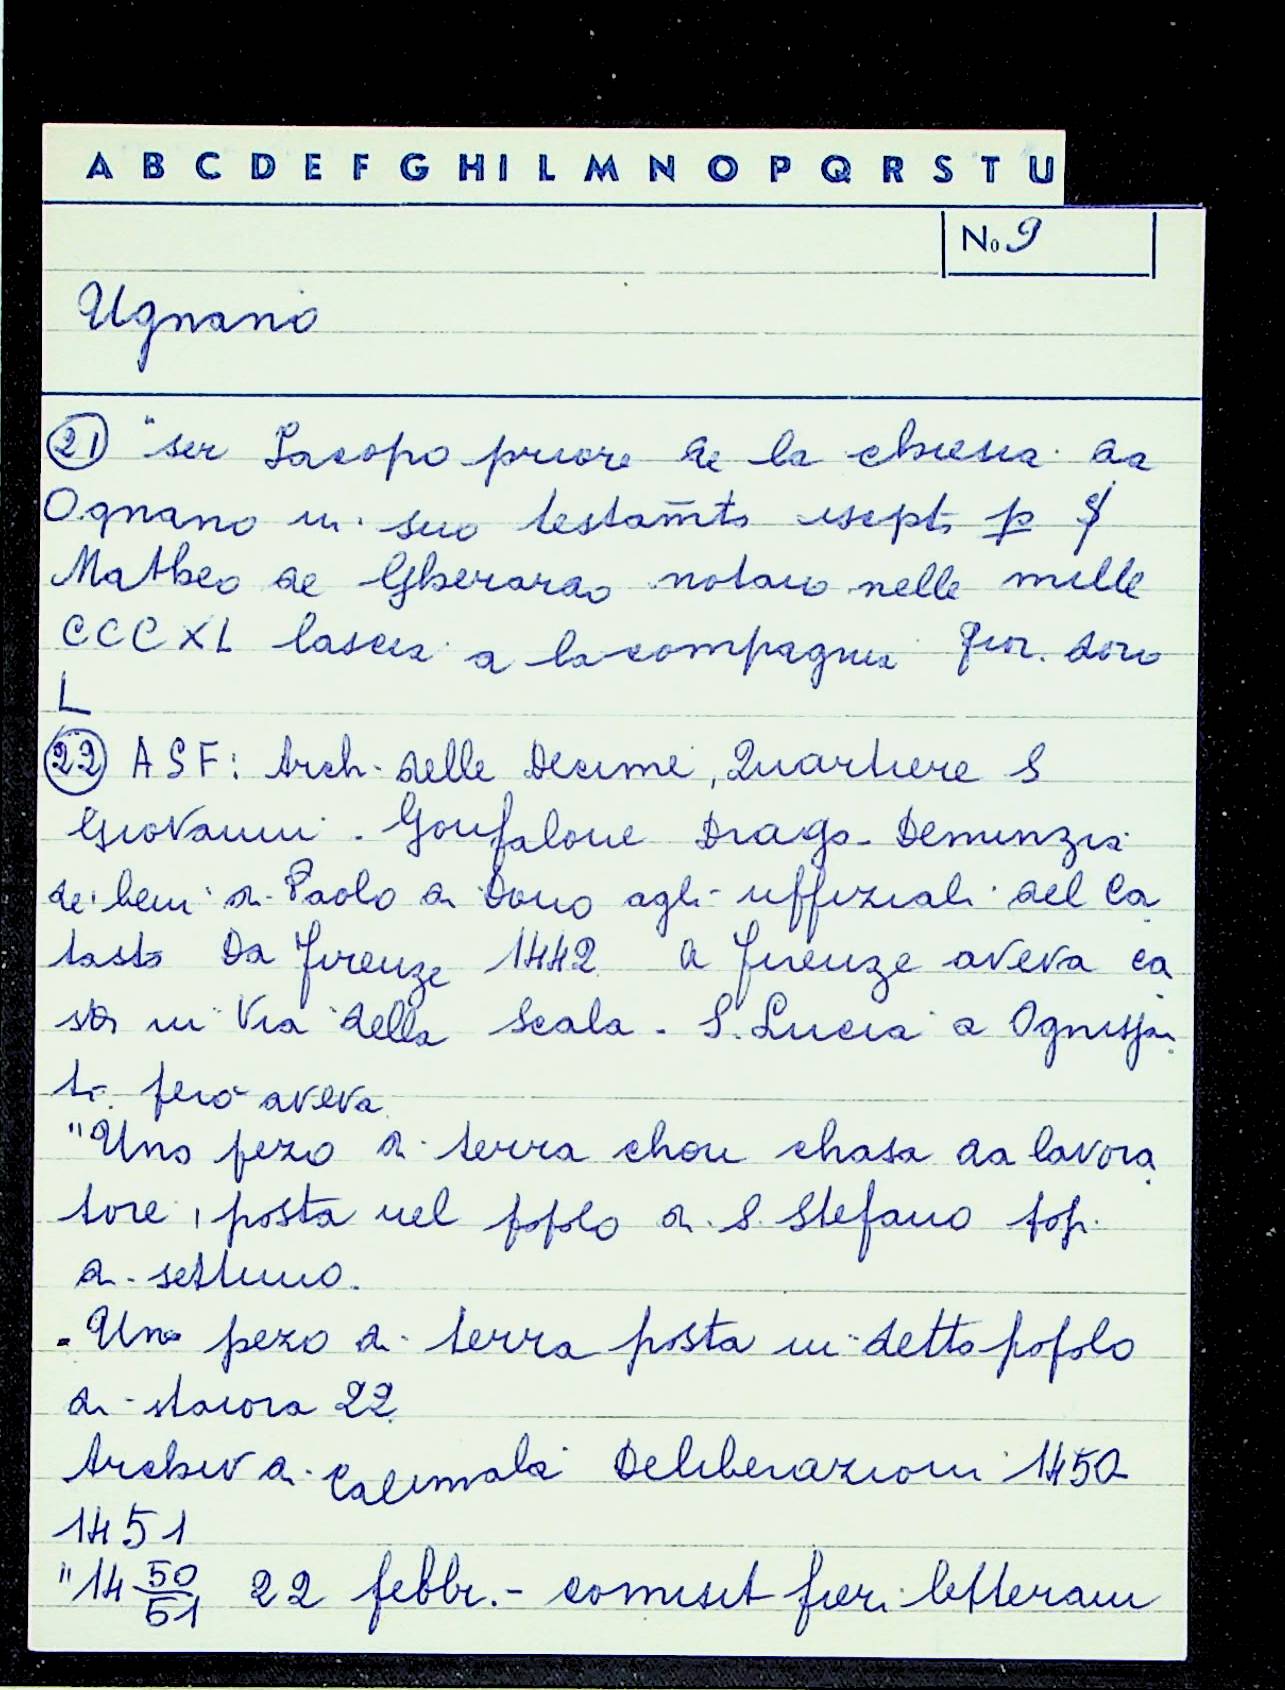 A B C D E F G H I L M N O P Q R S T U
No 9
Ugnano
(21) "ser Iacopo priore de la chiesia da
Ognano in suo testam̄to iscpto p̲ S
Matheo de Gherardo notaio nelle mille
CCCXL lascia a la compagnia fior. doro
L
(22) ASF: Arch. delle Decime, Quartiere S
Giovanni - Gonfalone Drago - Denunzia
dei beni di Paolo di Dono agli uffiziali del Ca
tasto Da Firenze 1442 a Firenze aveva ca
sa in Via della Scala - S. Lucia a Ognissan
ti. però aveva
"Uno pezo di terra chon chasa da lavora
tore, posta nel popolo di S. Stefano pop.
a settimo.
- Uno pezo di terra posta in detto popolo
di staiora 22
Archiv di Calimala Deliberazioni 1450
1451
"14 50/51 22 febbr. - comisit fieri letteram